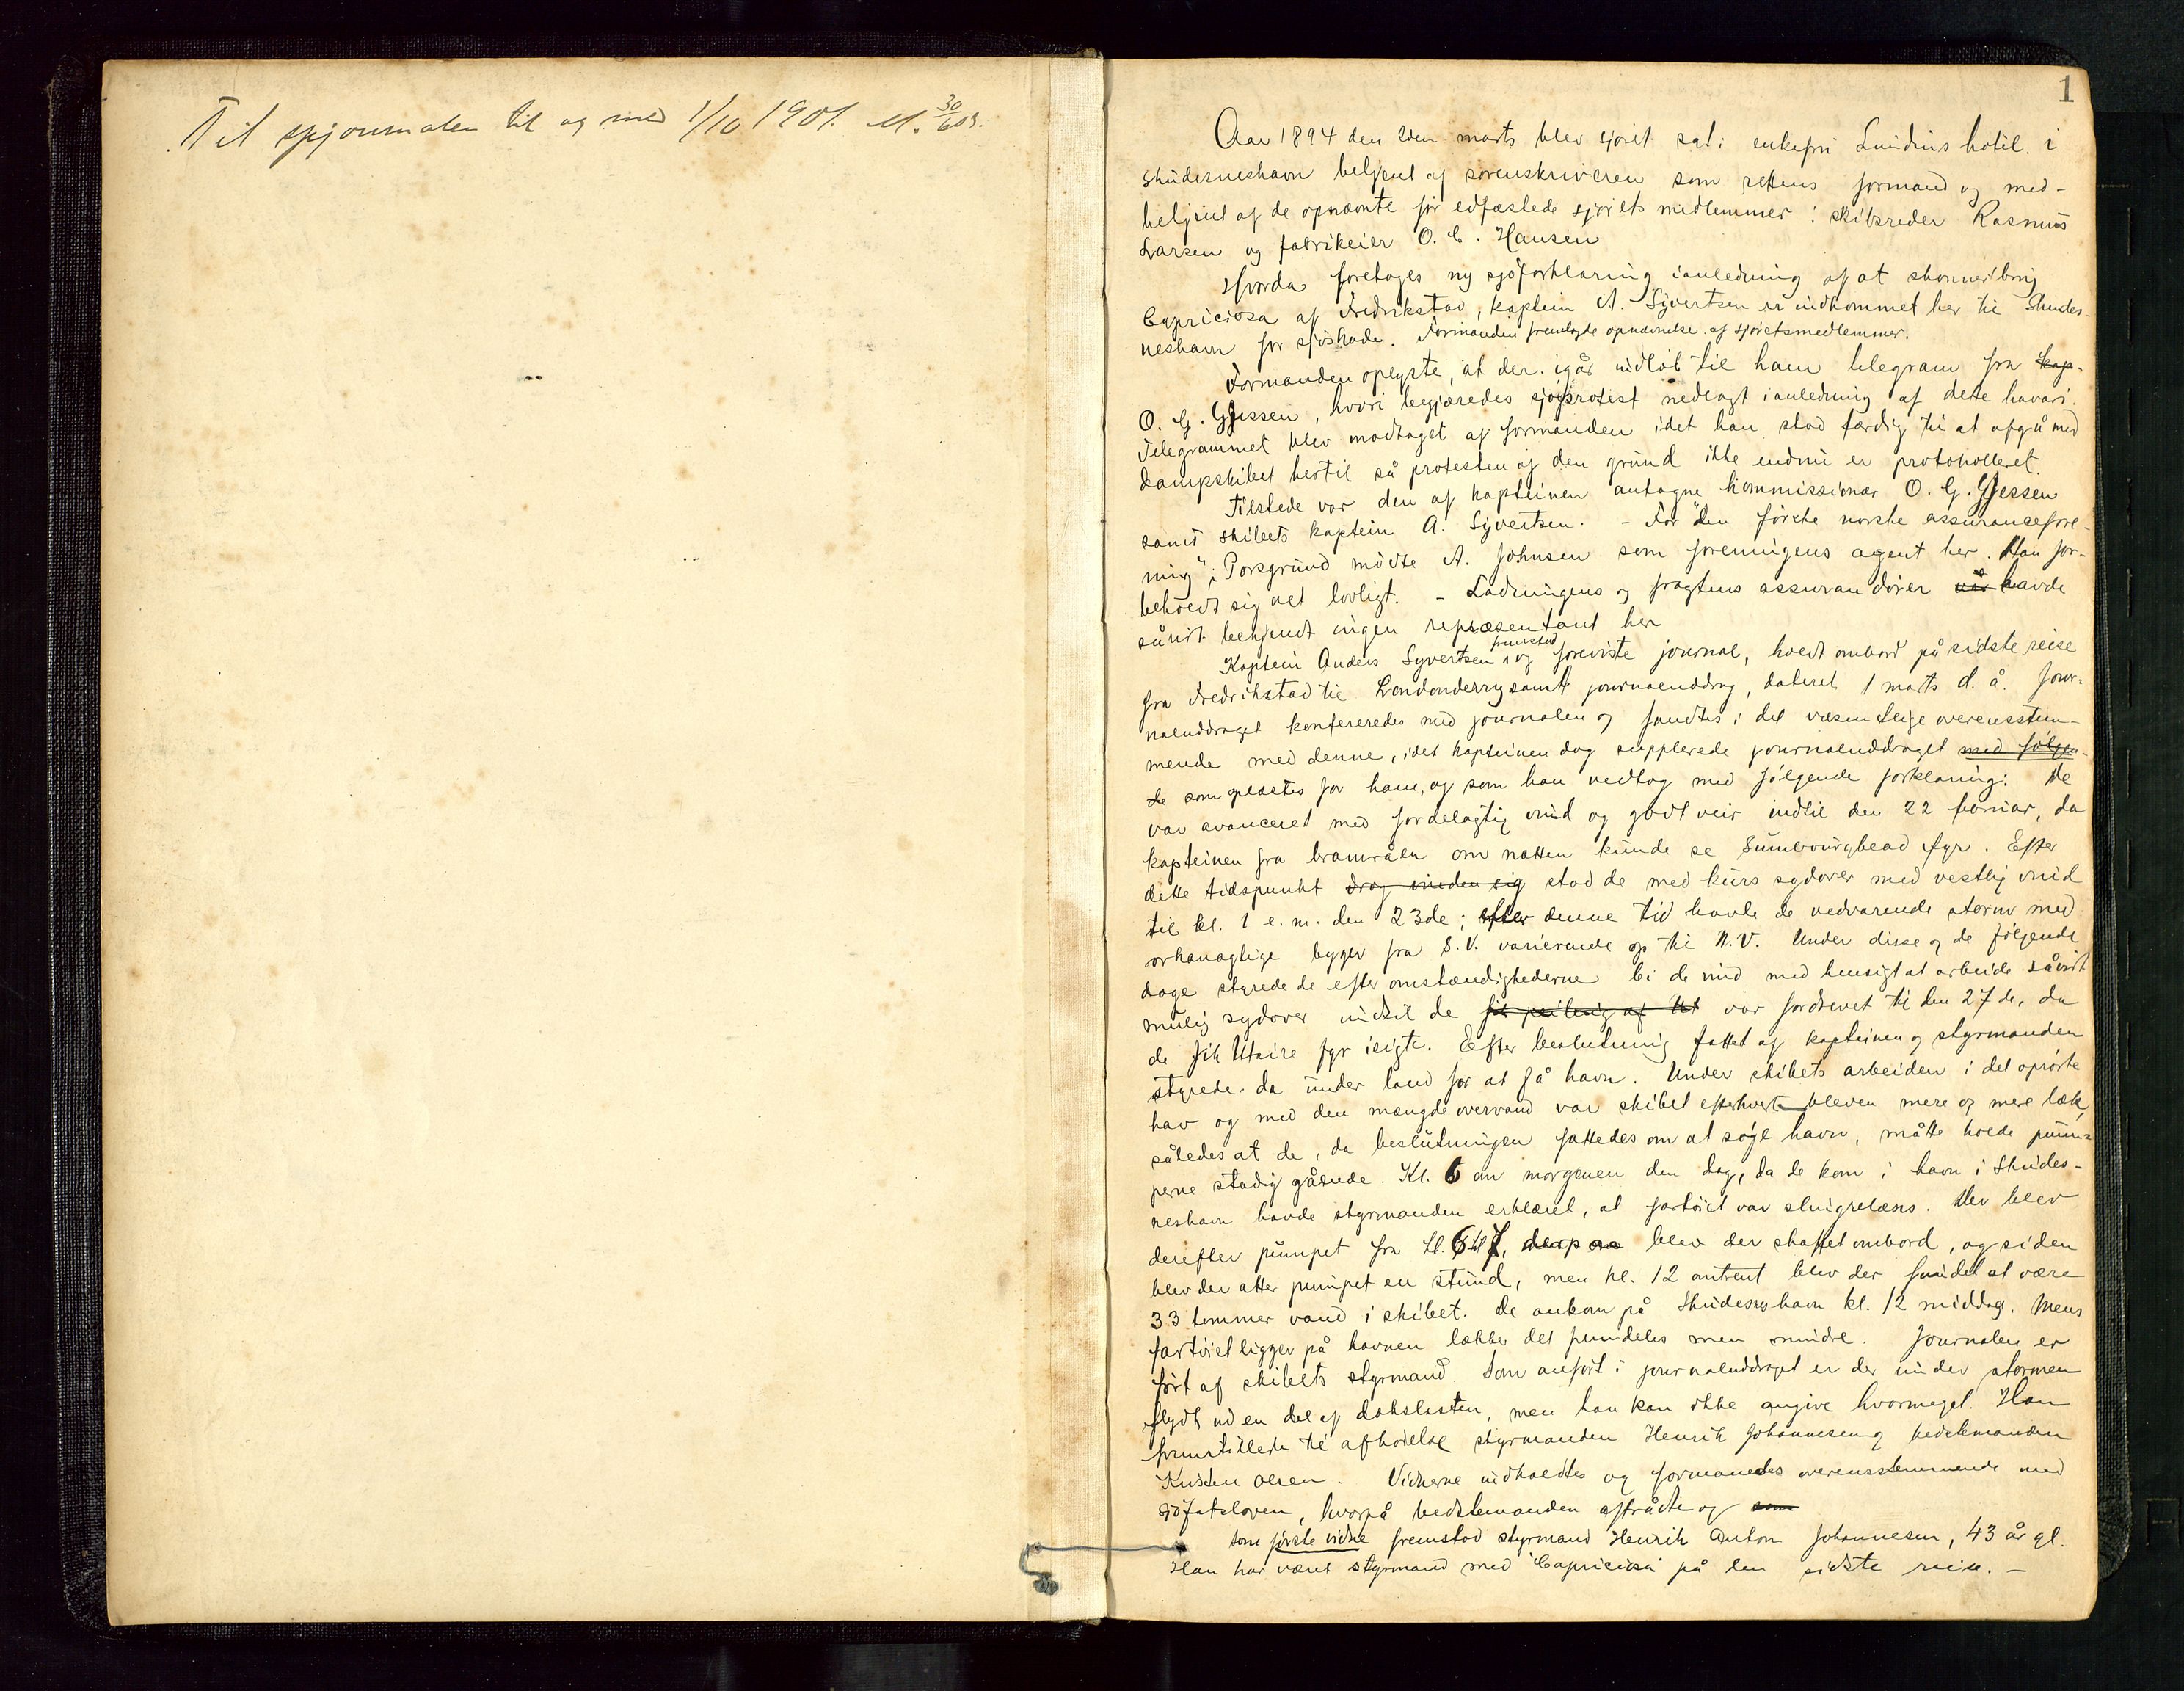 Til spjournalen til og med 1/10 1901. M. 30/603.
1
Aar 1894 den 2den marts blev sjøret sat i enkefru Lundins hotel i
Skudesneshavn betjent af sorenskriveren som rettens formand og med-
betjent af de opnævnte før edfæstede sjørets medlemmer: skibsreder Rasmus
Larsen og fabrikeier O. C. Hansen
Hvorda foretoges ny sjøforklaring ianledning af at skonnertbrig
Capriciosa af Fredrikstad, kaptein A. Syvertsen er indkommet her til Skudes-
neshavn for sjøskade. Formanden fremlagde opnævnelse af sjøretsmedlemmer.
Formanden oplyste, at der igår indløb til ham telegram fra kap-
O. G. Gjessen, hvori begjæredes sjøprotest nedlagt ianledning af dette havari.
Telegrammet blev modtaget af formanden idet han stod færdig til at afgå med
dampskibet hertil så protesten af den grund ikke endnu er protokolleret.
Tilstede var den af kapteinen antagne kommissionær O. G. Gjessen
samt skibets kaptein A. Syvertsen. - For "den første norske assuranceforе-
ning" i Porsgrund mødte A. Johnsen som foreningens agent her. Han for-
beholdt sig alt lovligt. - Ladningens og fragtens assurandører var havde
såvidt bekjendt ingen repræsentant her
Kaptein Anders Syvertsen fremstod og foreviste journal, holdt ombord på sidste reise
fra Fredrikstad til Londonderry samt journaluddrag, dateret 1 marts d. å. Jour-
naluddraget konfereredes med journalen og fandtes i det væsentlige overensstem-
mende med denne, idet kapteinen dog supplerede journaluddraget med følgen-
de som oplæstes for ham, og som han vedtog med følgende forklaring: De
var avanceret med fordelagtig vind og godt veir indtil den 22 februar, da
kapteinen fra bramråen om natten kunde se Sumbourghead fyr. Efter
dette tidspunkt drog vinden sig stod de med kurs sydover med vestlig vind
til kl. 1 e. m. den 23de; efter denne tid havde de vedvarende storm med
orkanagtige byger fra S.V. varierende op til N.V. Under disse og de følgende
dage styrede de efter omstændighederne bi de vind med hensigt at arbeide såvidt
mulig sydover indtil de fik peiling af Ut var fordrevet til den 27de, da
de fik Utsire fyr isigte. Efter beslutning fattet af kapteinen og styrmanden
styrede da under land for at få havn. Under skibets arbeiden i det oprørte
hav og med den mængde overvand var skibet efterhvert bleven mere og mere læk,
således at de, da beslutningen fattedes om at søge havn, måtte holde pum-
perne stadig gående. Kl. 6 om morgenen den dag, da de kom i havn i Skudes-
neshavn havde styrmanden erklæret, at fartøiet var slingrelæns. Der blev
derefter pumpet fra kl. 6 til 7, derpaa blev der skaffet ombord, og siden
blev der atter pumpet en stund, men kl. 12 omtrent blev der fundet at være
33 tommer vand i skibet. De ankom på Skudesneshavn kl. 12 middag. Mens
fartøiet ligger på havnen lække det fremdeles men mindre. Journalen er
ført af skibets styrmand. Som anført i journaluddraget er der under stormen
flydt ud en del af dækslasten, men han kan ikke angive hvormeget. Han
fremstillede til afhørelse styrmanden Henrik Johannesen og bedstemanden
Kristen Olsen. Vidnerne indkaldtes og formanedes overensstemmende med
sjøfartsloven, hvorpå bedstemanden aftrådte og som
som første vidne fremstod styrmand Henrik Anton Johannesen, 43 år gl.
Han har været styrmand med "Capriciosa" på den sidste reise. -